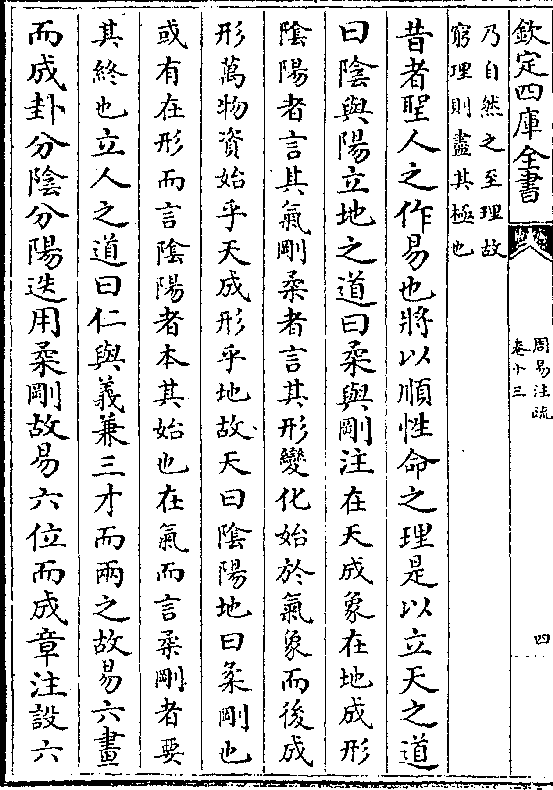 欽定四庫全書
周易注疏
卷十三
四
乃自然之至理故
窮理則盡其極也
昔者聖人之作易也將以順性命之理是以立天之道
曰陰與陽立地之道曰柔與剛注在天成象在地成形
陰陽者言其氣剛柔者言其形變化始於氣象而後成
形萬物資始乎天成形乎地故天曰陰陽地曰柔剛也
或有在形而言陰陽者本其始也在氣而言柔剛者要
其終也立人之道曰仁與義兼三才而兩之故易六畫
而成卦分陰分陽迭用柔剛故易六位而成章注設六